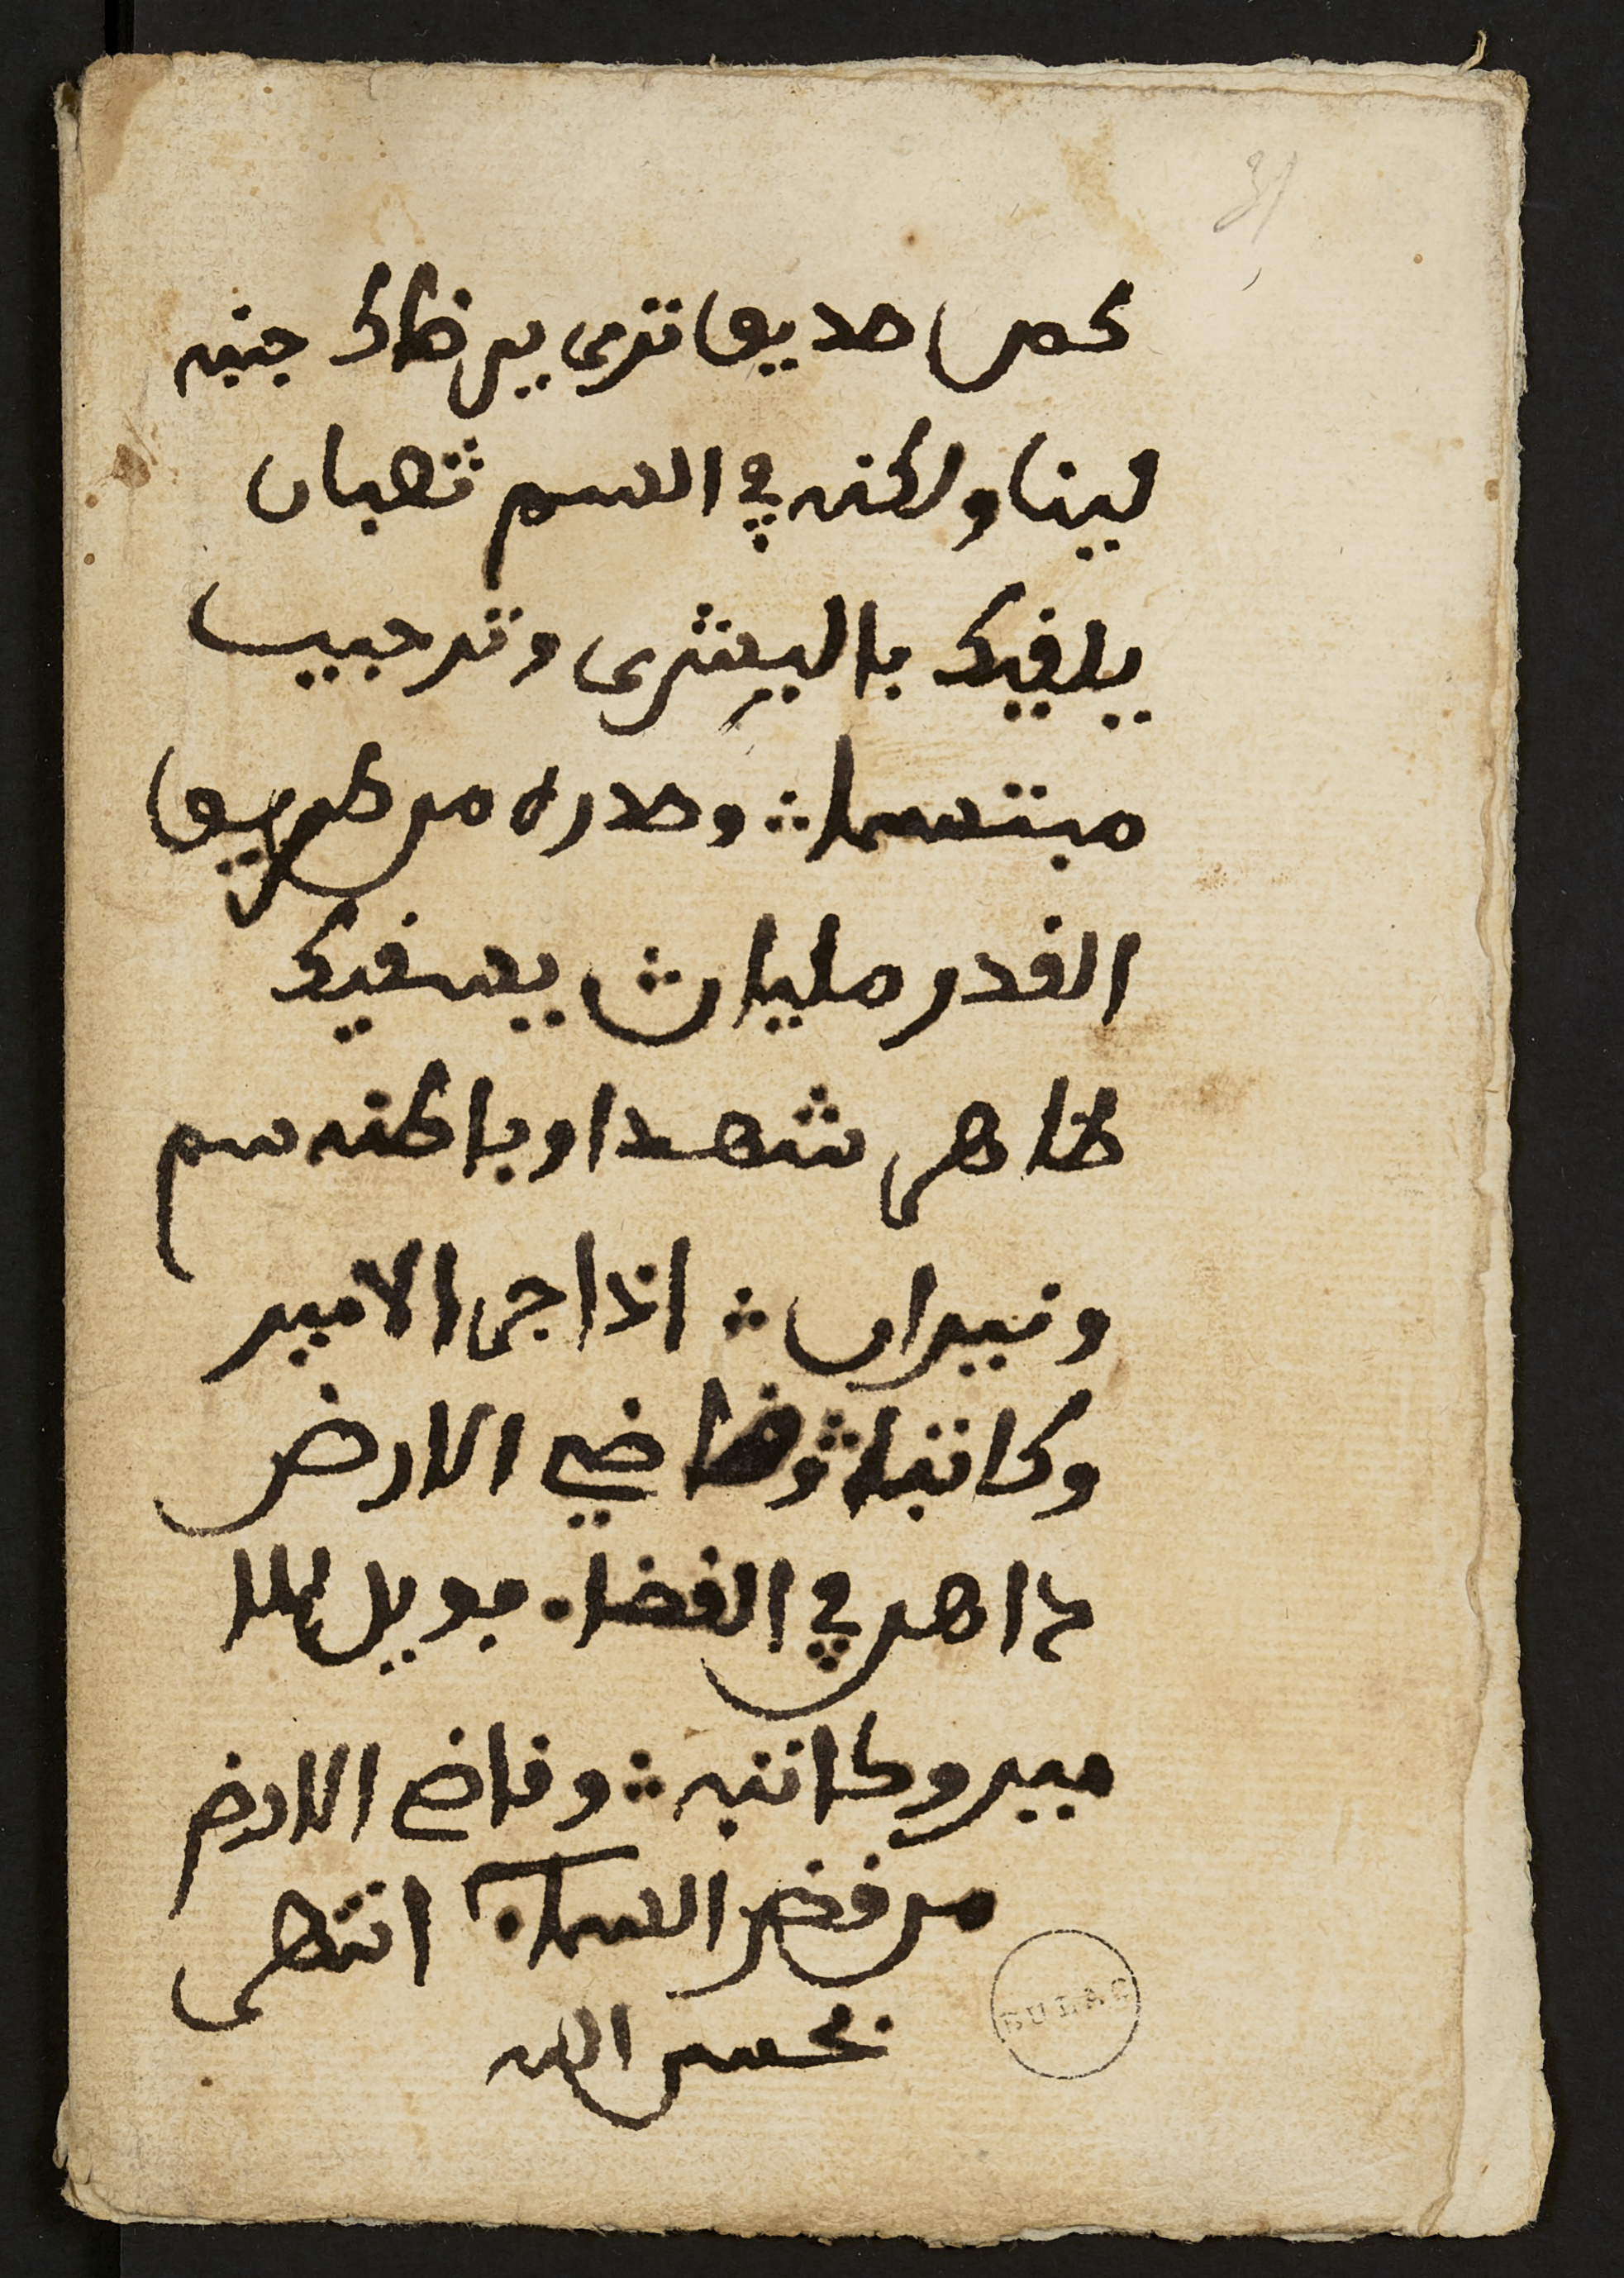 31
كمن صديق ترى يرظاك جنبه
لينا ولكنه في السم ثعبان
يلاقيك بالبيشرى وترحيب
مبتسما ؞ وصدره من طريق
الغدر مليان ؞ يسقيك
ظاهر شهدا وباطنه سم
ونيران ؞ اذا جى الامير
وكاتباه وقاضي الارض
داهن في القضاء فويل للا
مير وكاتبه ؞ وقاضي الارض
من قضى السماء انتهى
بحسن الله
BULAC